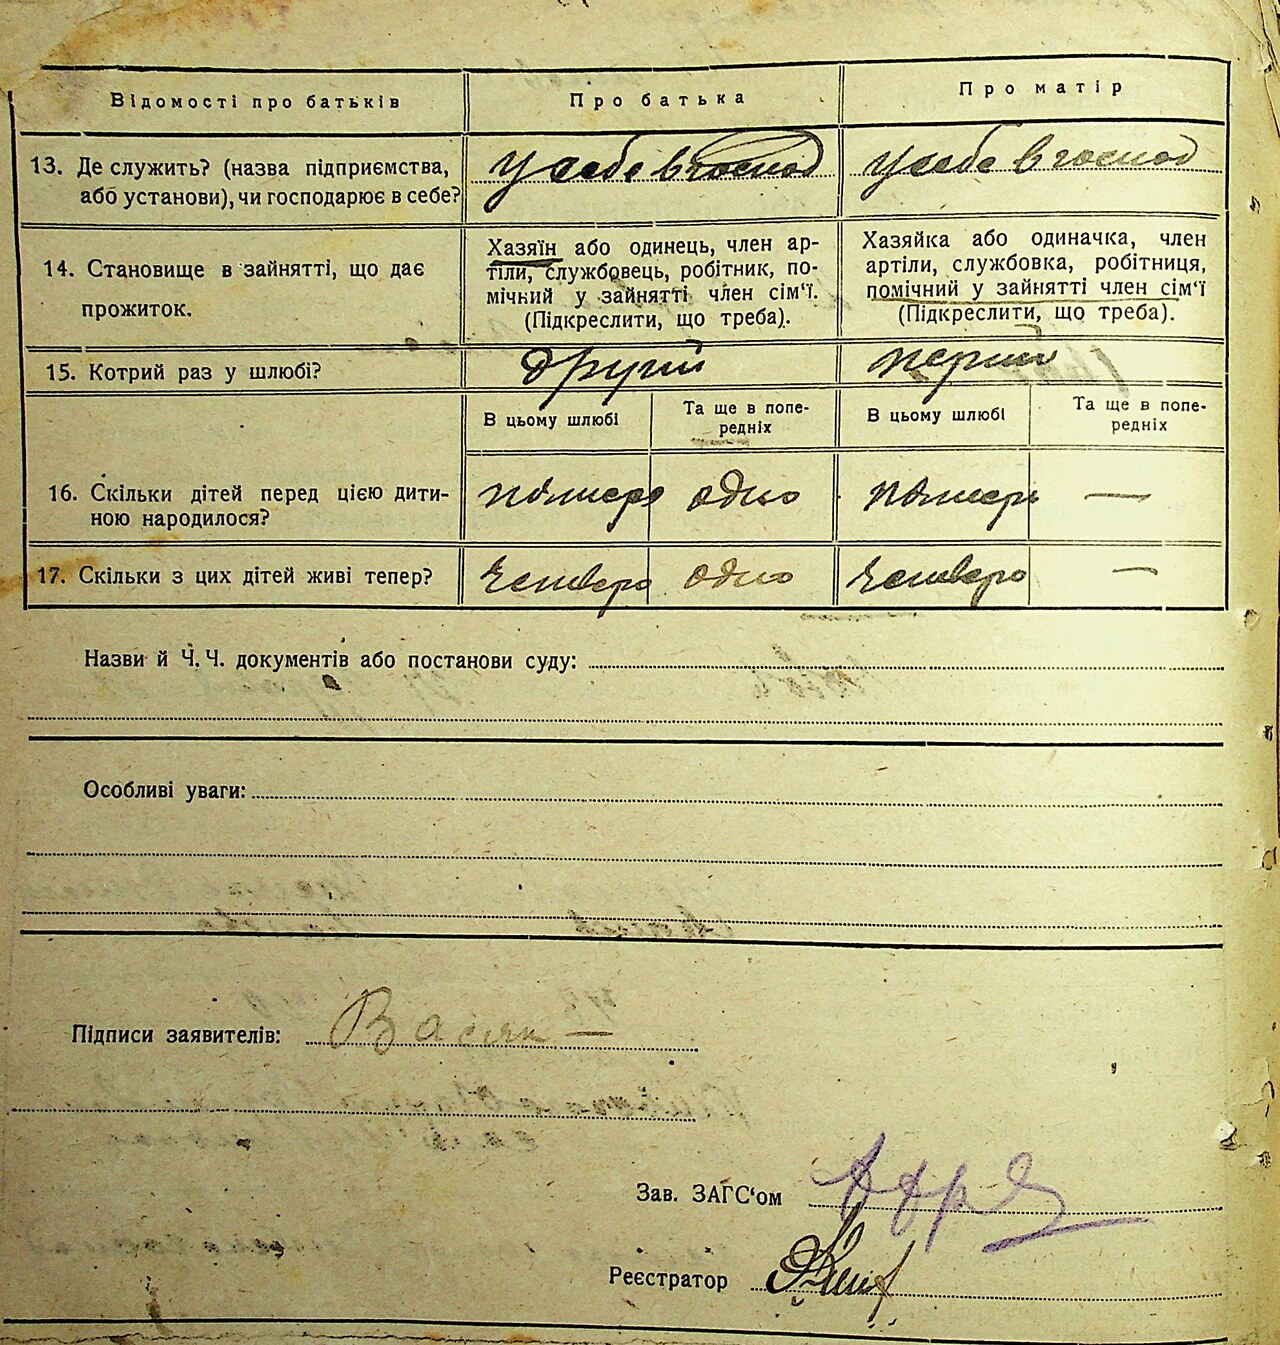 Відомості про батьків
Про батька
Про матір
13. Де служить? (назва підприємства, або установи), чи господарює в себе?
у себе в господ
у себе в господ
14. Становище в зайнятті, що дає прожиток.
Хазяїн або одинець, член ар-
тіли, службовець, робітник, по-
мічний у зайнятті член сім'ї.
(Підкреслити, що треба).
Хазяйка або одиначка, член
артіли, службовка, робітниця,
помічний у зайнятті член сім'ї
(Підкреслити, що треба).
15. Котрий раз у шлюбі?
другий
перший
В цьому шлюбі
Та ще в попе-
редніх
В цьому шлюбі
Та ще в попе-
редніх
16. Скільки дітей перед цією дити-
ною народилося?
одно
—
17. Скільки з цих дітей живі тепер?
четверо
одно
четверо
—
Назви й Ч. Ч. документів або постанови суду:
Особливі уваги:
Підписи заявителів:
Зав. ЗАГС'ом
Реєстратор